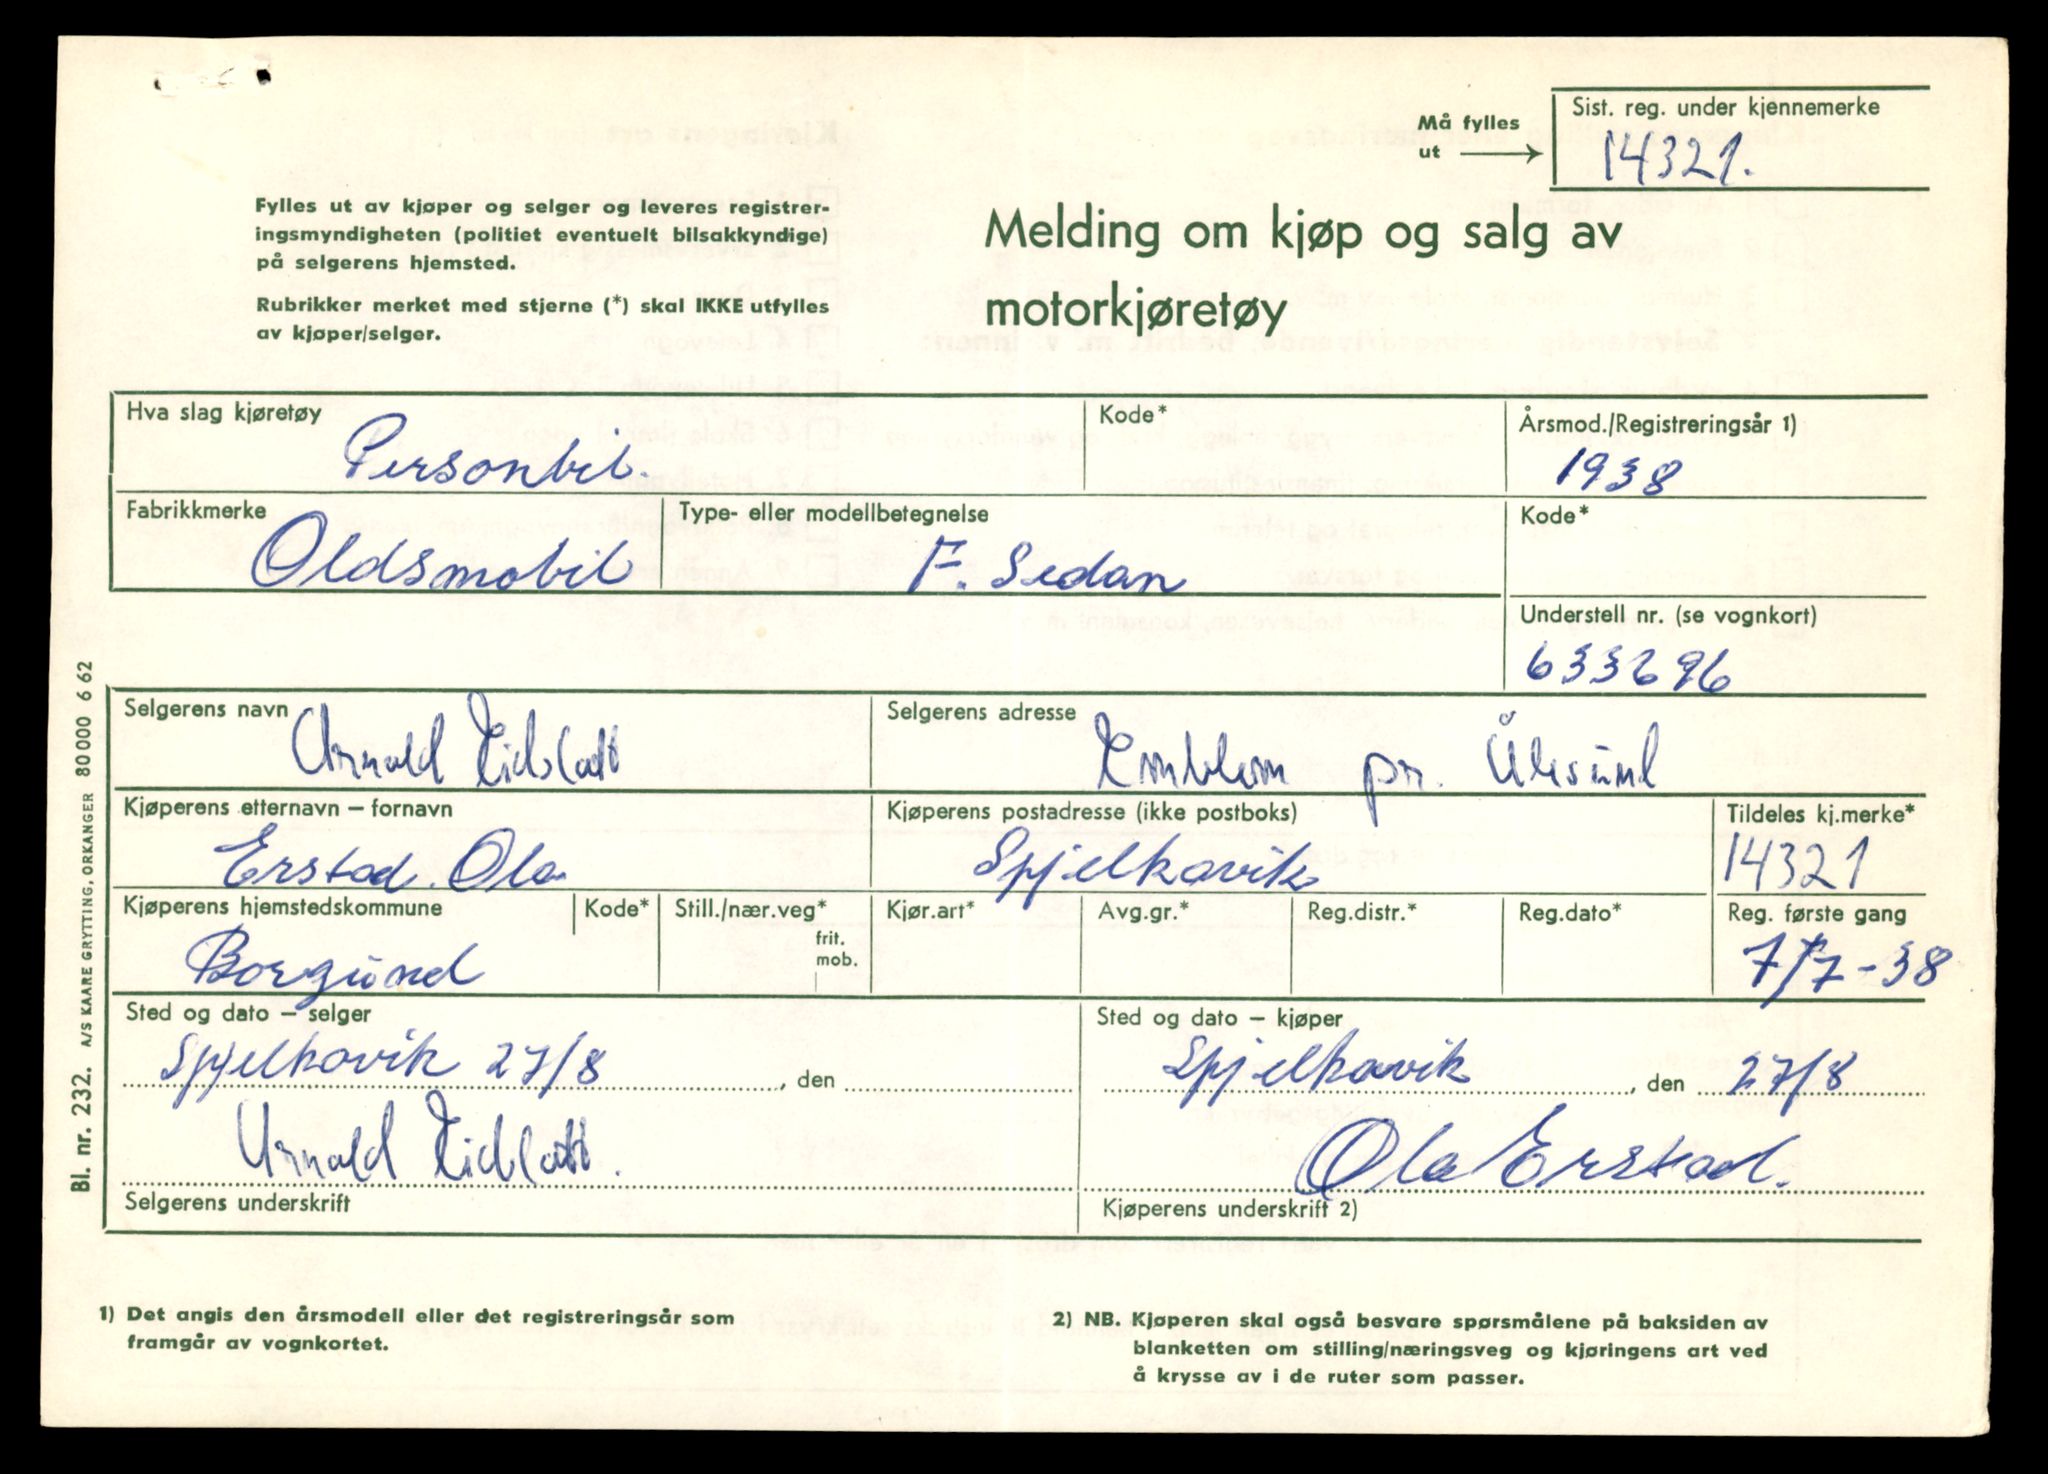 Må fylles
ut
Sist. reg. under kjennemerke
14321.
Fylles ut av kjøper og selger og leveres registrer-
ingsmyndigheten (politiet eventuelt bilsakkyndige)
på selgerens hjemsted.
Rubrikker merket med stjerne (*) skal IKKE utfylles
av kjøper/selger.
Melding om kjøp og salg av
motorkjøretøy
Hva slag kjøretøy
Personbil.
Kode*
Årsmod./Registreringsår 1)
1938
Fabrikkmerke
Oldsmobil
Type- eller modellbetegnelse
F. Sedan
Kode*
Understell nr. (se vognkort)
633696
Selgerens navn
Arnold Eidslatt
Selgerens adresse
Emblem pr. Ålesund
Kjøperens etternavn – fornavn
Erstad. Ola
Kjøperens postadresse (ikke postboks)
Spjelkavik
Tildeles kj.merke*
14321
Kjøperens hjemstedskommune
Borgund
Kode*
Still./nær.veg*
frit.
mob.
Kjør.art*
Avg.gr.*
Reg.distr.*
Reg.dato*
Reg. første gang
7/7-38
Sted og dato – selger
Spjelkavik 27/8 , den
Sted og dato – kjøper
Spjelkavik , den 27/8
Arnold
Selgerens underskrift
Ola Erstad.
Kjøperens underskrift 2)
Bl. nr. 232. A/S KAARE GRYTTING, ORKANGER 80 000 6 62
1) Det angis den årsmodell eller det registreringsår som
framgår av vognkortet.
2) NB. Kjøperen skal også besvare spørsmålene på baksiden av
blanketten om stilling/næringsveg og kjøringens art ved
å krysse av i de ruter som passer.